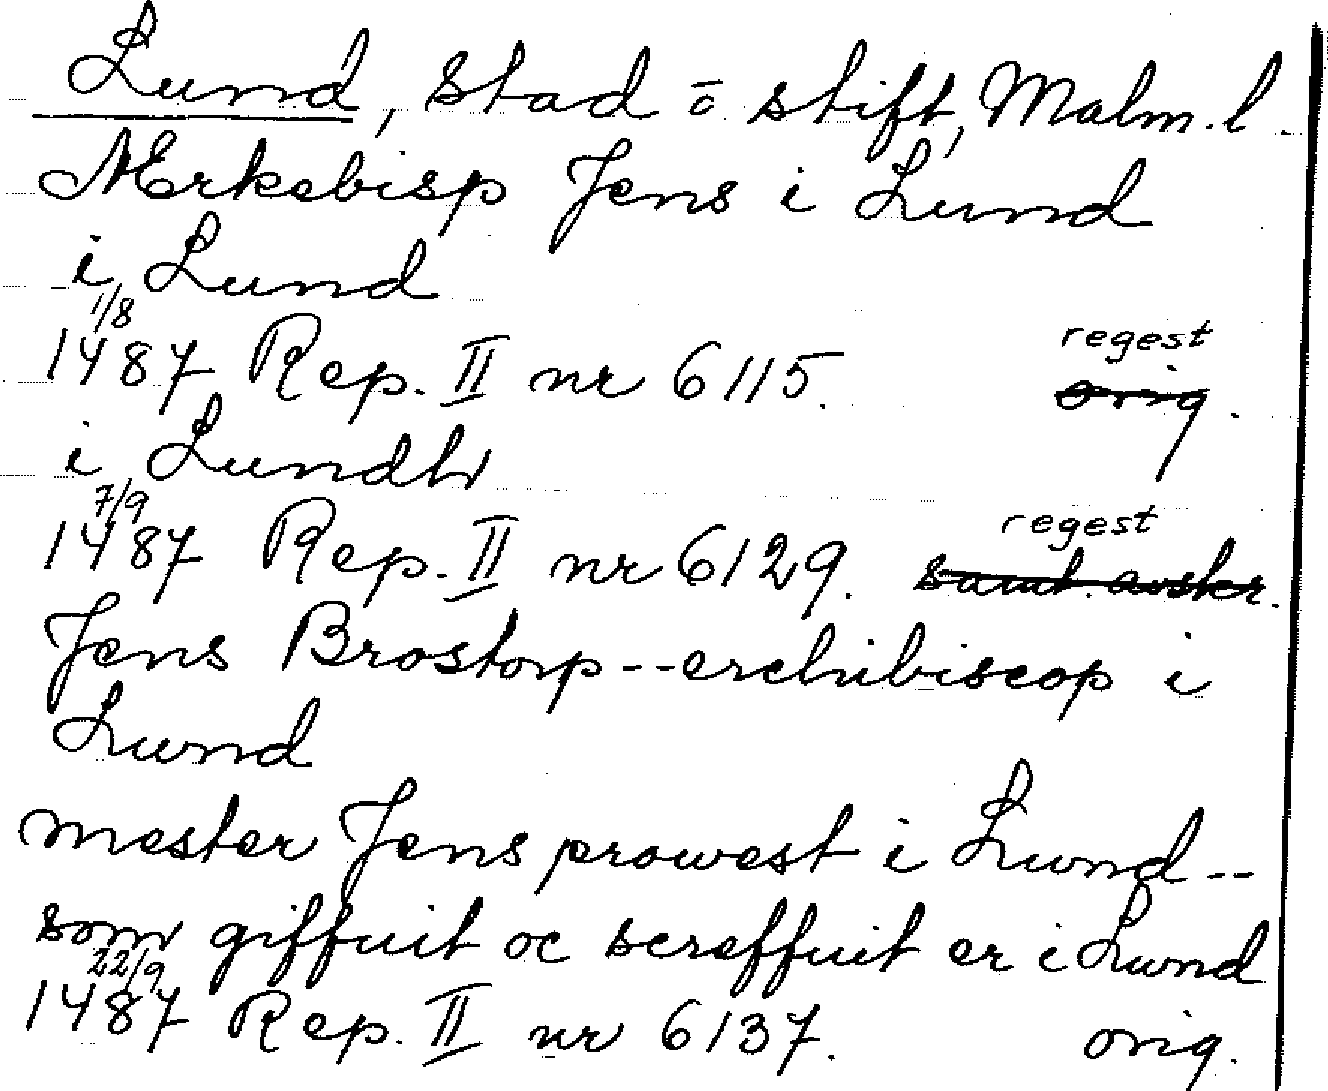 Lund, stad o. stift, Malm. l.
Ærkebisp Jens i Lund
i Lund
1/8
1487 Rep. II nr 6115. regest
orig.
i Lundh
7/9
1487 Rep. II nr 6129. regest
saml. avskr.
Jens Brostorp -- erchibiscop i
Lund
mester Jens prowest i Lund --
som giffuit oc screffuit er i Lund
22/9
1487 Rep. II nr 6137. orig.